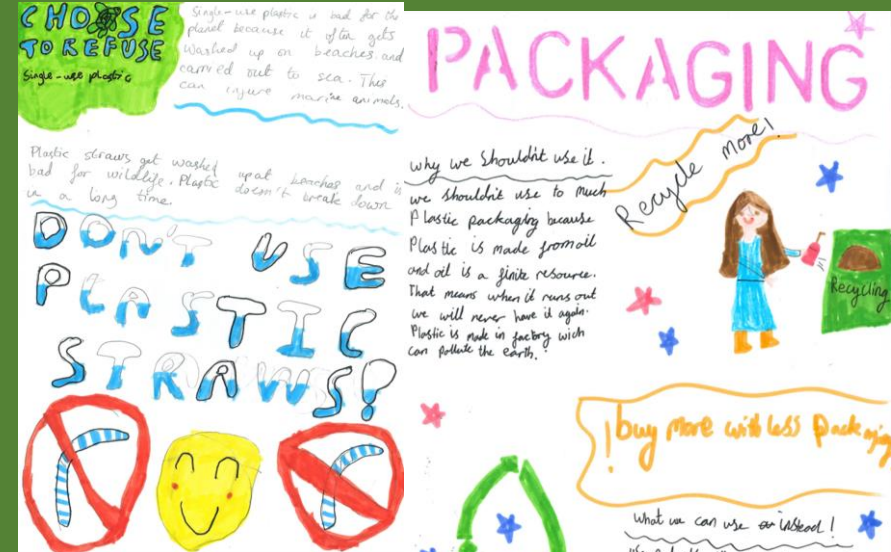 CHOOSE
TO REFUSE
Single-use plastic
Single-use plastic is bad for the
planet because it often gets
washed up on beaches and
carried out to sea. This
can injure marine animals.
Plastic straws get washed up at beaches and is
bad for wildlife. Plastic doesn't break down
in a long time.
DON'T USE
PLASTIC
STRAWS!
PACKAGING
Recycle more!
why we Shouldnt use it.
we shouldnt use to much
Plastic packaging because
Plastic is made from oil
and oil is a finite resource.
That means when it runs out
we will never have it again.
Plastic is made in factory wich
can pollute the earth.
Recycling
!buy more with less Packaging
what we can use instead!